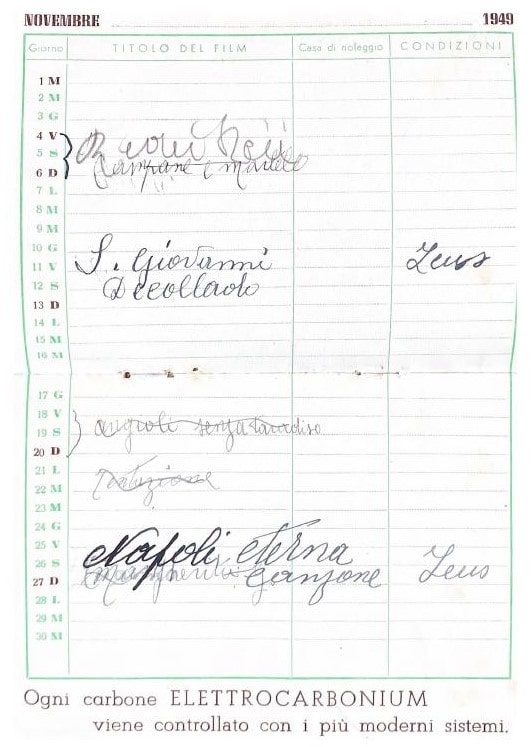 NOVEMBRE 1949
Giorno TITOLO DEL FILM Casa di noleggio CONDIZIONI
1 M
2 M
3 G
4 V
5 S
6 D Campane e martello
7 L
8 M
9 M
10 G S. Giovanni Zeus
11 V
12 S Decollado
13 D
14 L
15 M
16 M
17 G
18 V
19 S angioli senza paradiso
20 D
21 L
22 M
23 M
24 G
25 V Napoli eterna
26 S
27 D Canzone Zeus
28 L
29 M
30 M
Ogni carbone ELETTROCARBONIUM
viene controllato con i più moderni sistemi.